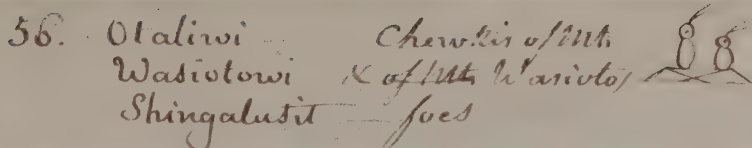 56. Otaliwi Cherokis of Mts
Wasiotowi X of Mts Wasioto
Shingalusit foes